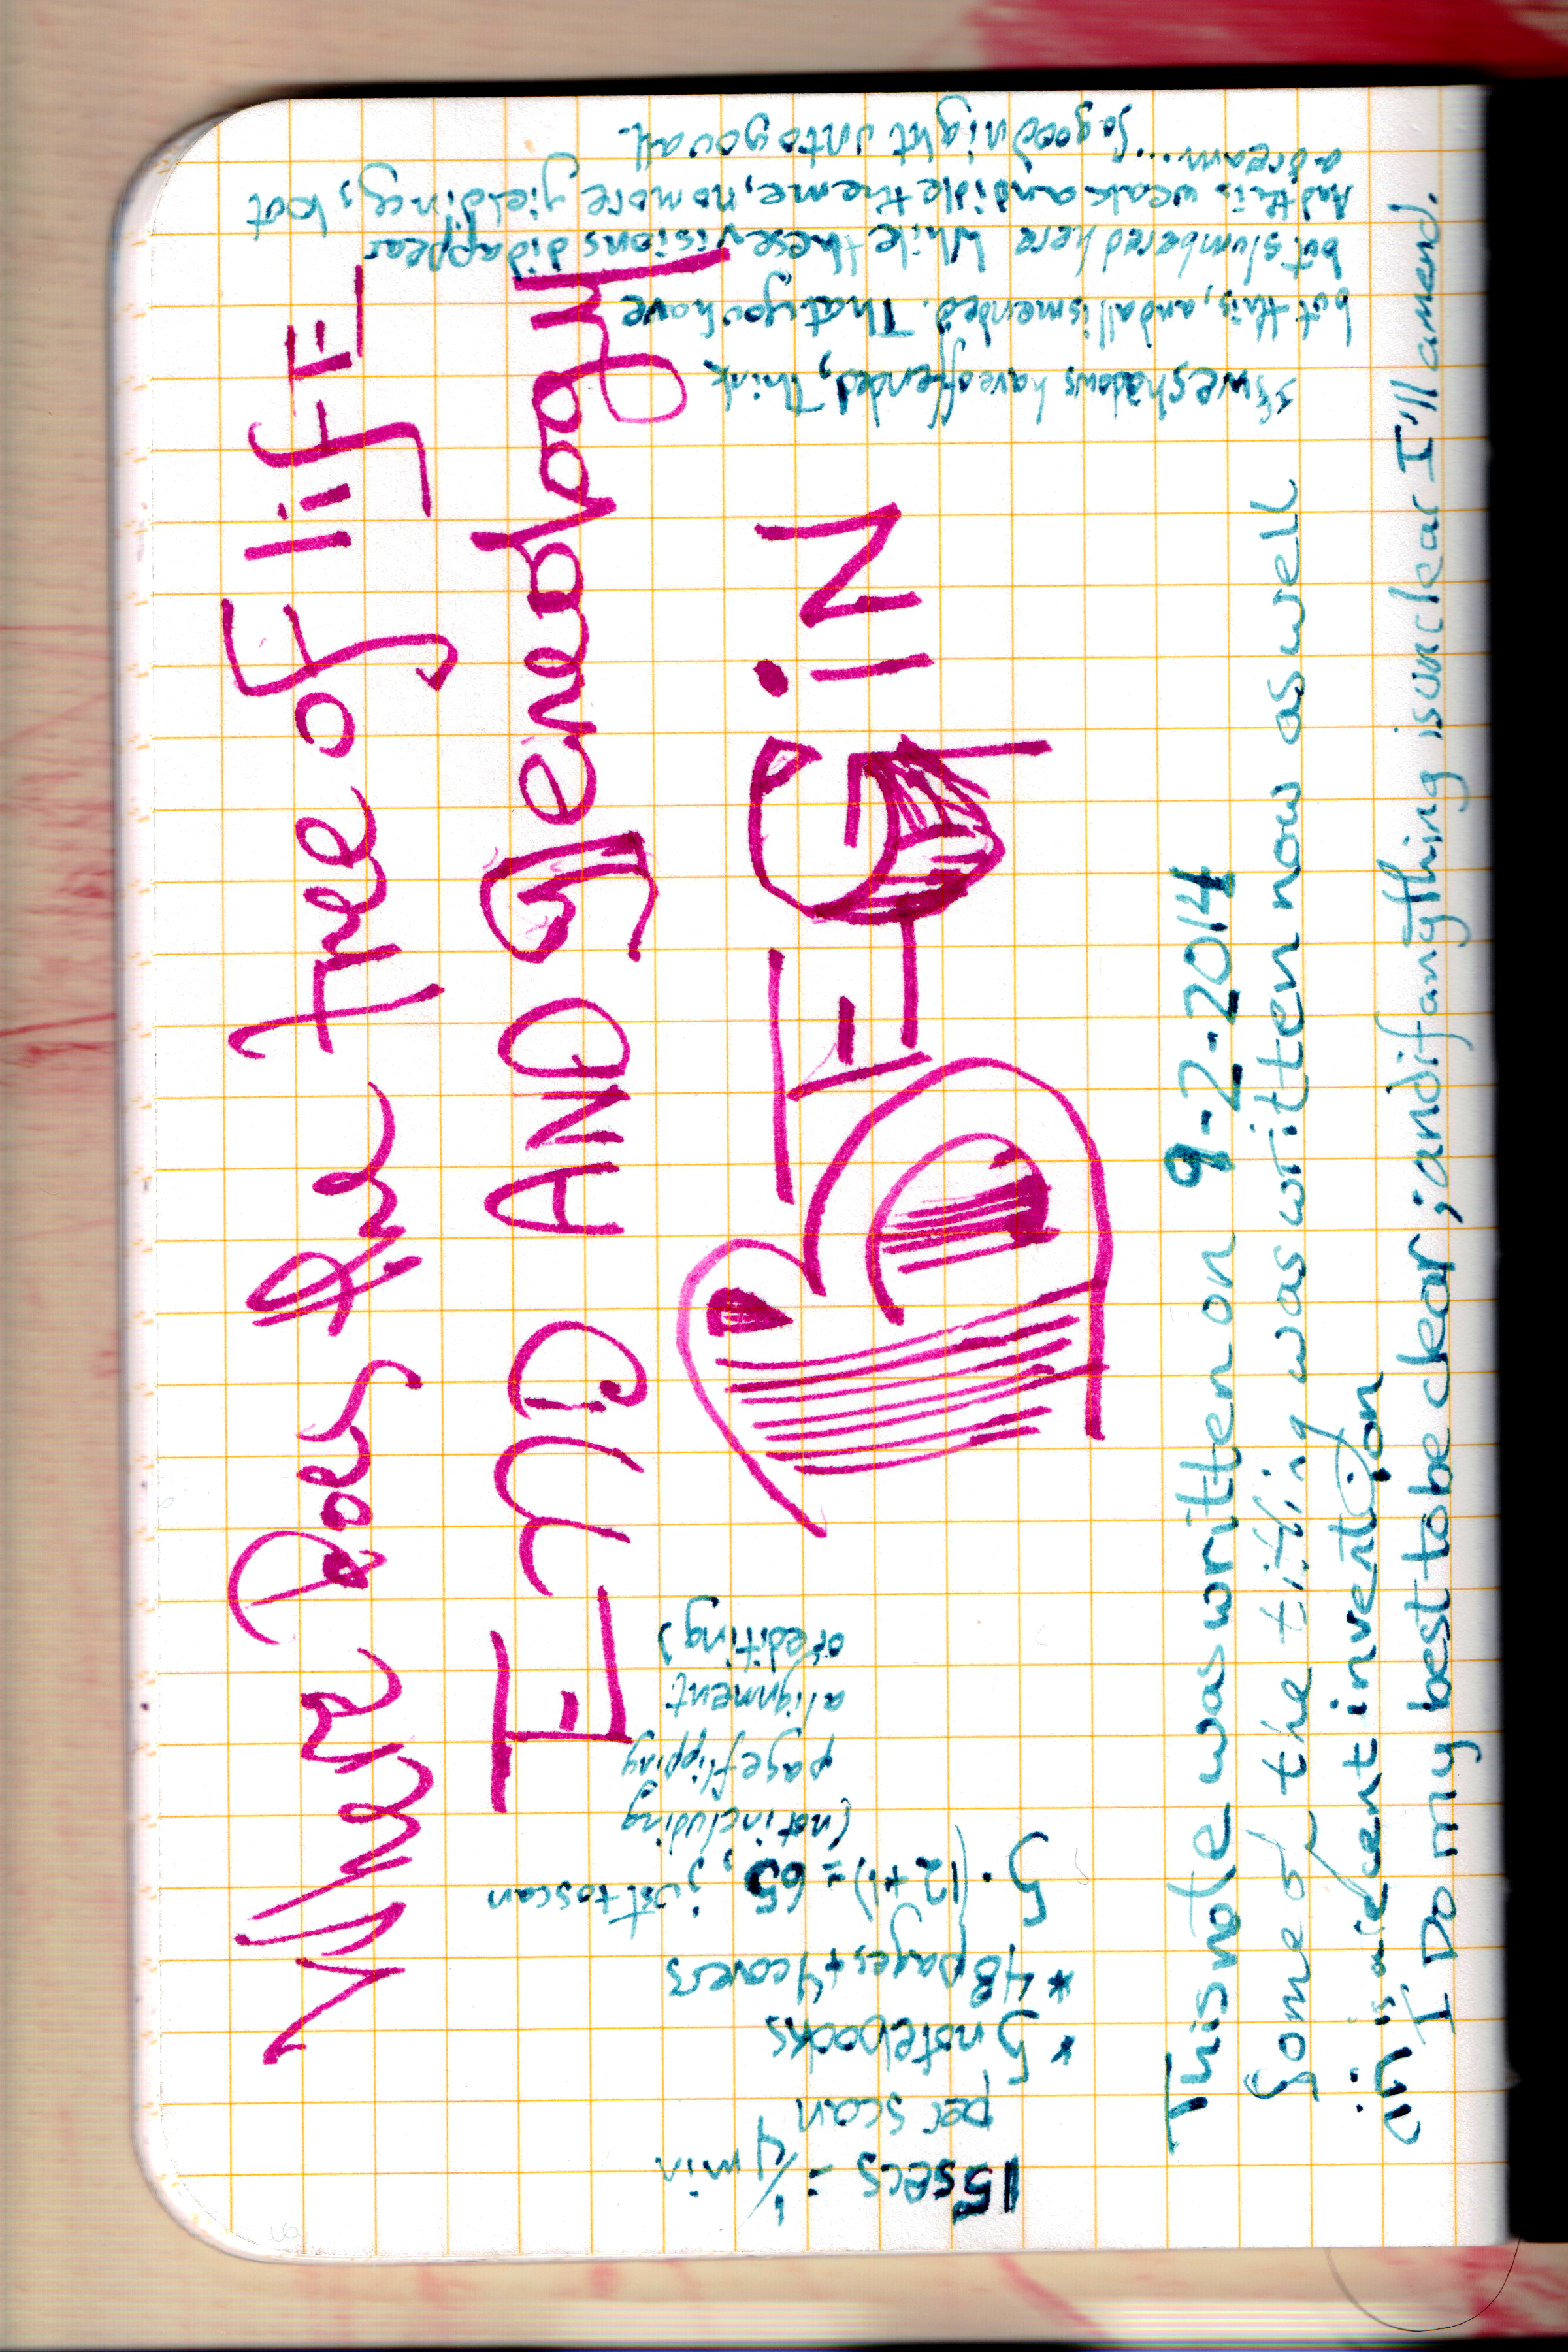 Where Does the tree of lifE
End AND genealogy
BEGiN
This note was written on 9-2-2014
Some of the titling was written now as well
invention
I Do my best to be clear; and if anything is unclear I'll amend.
15secs = 1/4 min
per scan
* 5 notebooks
* 48 pages + 4 covers
5·(12+1) = 65, just to scan
(not including
page flipping
alignment
or editing)
If we shadows have offended, Think
but this, and all is mended. That you have
but slumbered here While these visions did appear
And this weak and idle theme, no more yielding, but
a dream.... So good night unto you all.